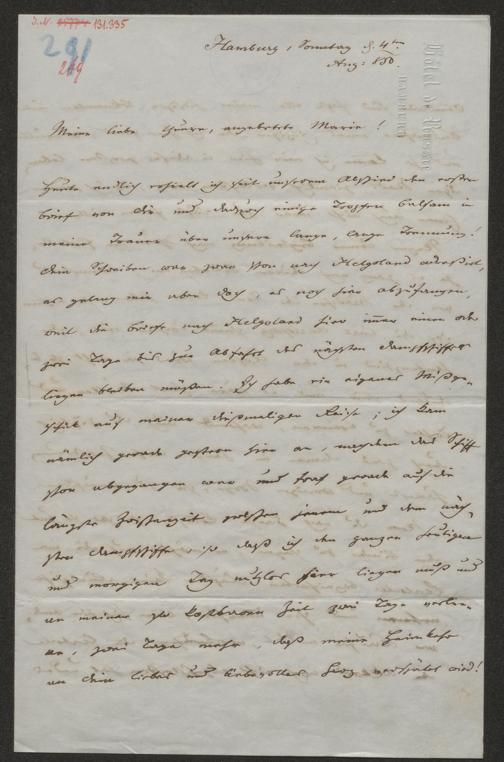 I.N. 131.335
291
219
Hôtel de Russie
HAMBURG
Hamburg, Sonntag d. 4ten
Aug: 850.
Meine liebe theure, angebetete Marie!
Heute endlich erhielt ich seit unserem Abschied den ersten
Brief von dir und dadurch einige Tropfen Balsam in
meine Trauer über unsere lange, lange Trennung!
Dein Schreiben war zwar schon nach Helgoland adressirt,
es gelang mir aber doch, es noch hier abzufangen,
weil die Briefe nach Helgoland hier immer einen oder
zwei Tage bis zur Abfahrt des nächsten Dampfschiffes
liegen bleiben müßen. Ich habe ein eigenes Mißge-
schick auf meiner dießmaligen Reise; ich kam
nämlich gerade gestern hier an, nachdem das Schiff
schon abgegangen war und traf gerade auf die
längste Zwischenzeit zwischen jenem und dem näch-
sten Dampfschiffe, so daß ich den ganzen heutigen
und morgigen Tag nutzlos hier liegen muß und
an meiner so kostbaren Zeit zwei Tage verlie-
re, zwei Tage mehr, daß meine Heimkehr
an dein liebes und liebevolles Herz verspätet wird!